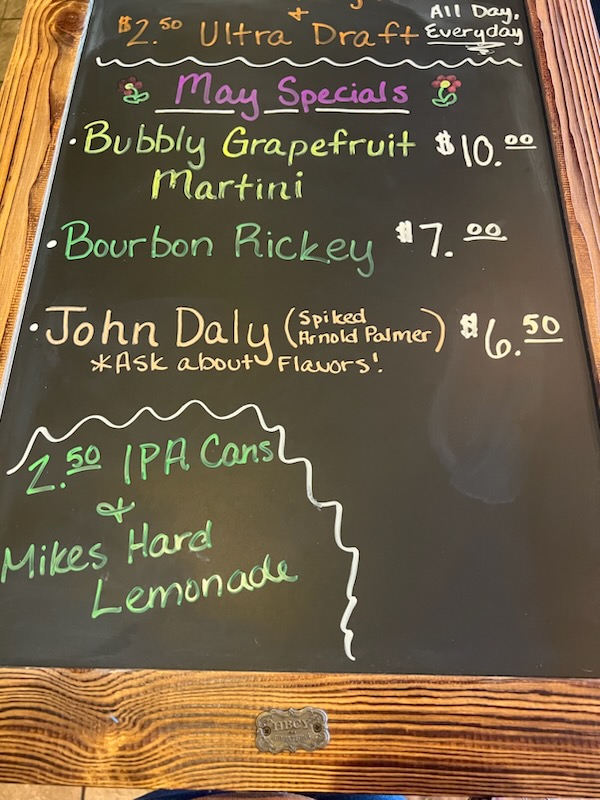 &
$2.50 Ultra Draft
All Day,
Everyday
May Specials
• Bubbly Grapefruit $10.00
Martini
• Bourbon Rickey $7.00
• John Daly (Spiked Arnold Palmer) $6.50
*Ask about Flavors!
2.50 IPA Cans
&
Mikes Hard
Lemonade
HBCY